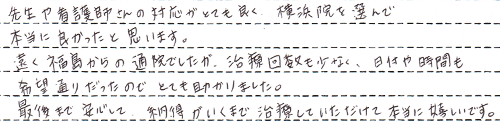 先生や看護師さんの対応がとても良く、横浜院を選んで
本当に良かったと思います。
遠く福島からの通院でしたが、治療回数も少なく、日付や時間も
希望通りだったのでとても助かりました。
最後まで安心して、納得がいくまで治療していただけて本当に嬉しいです。